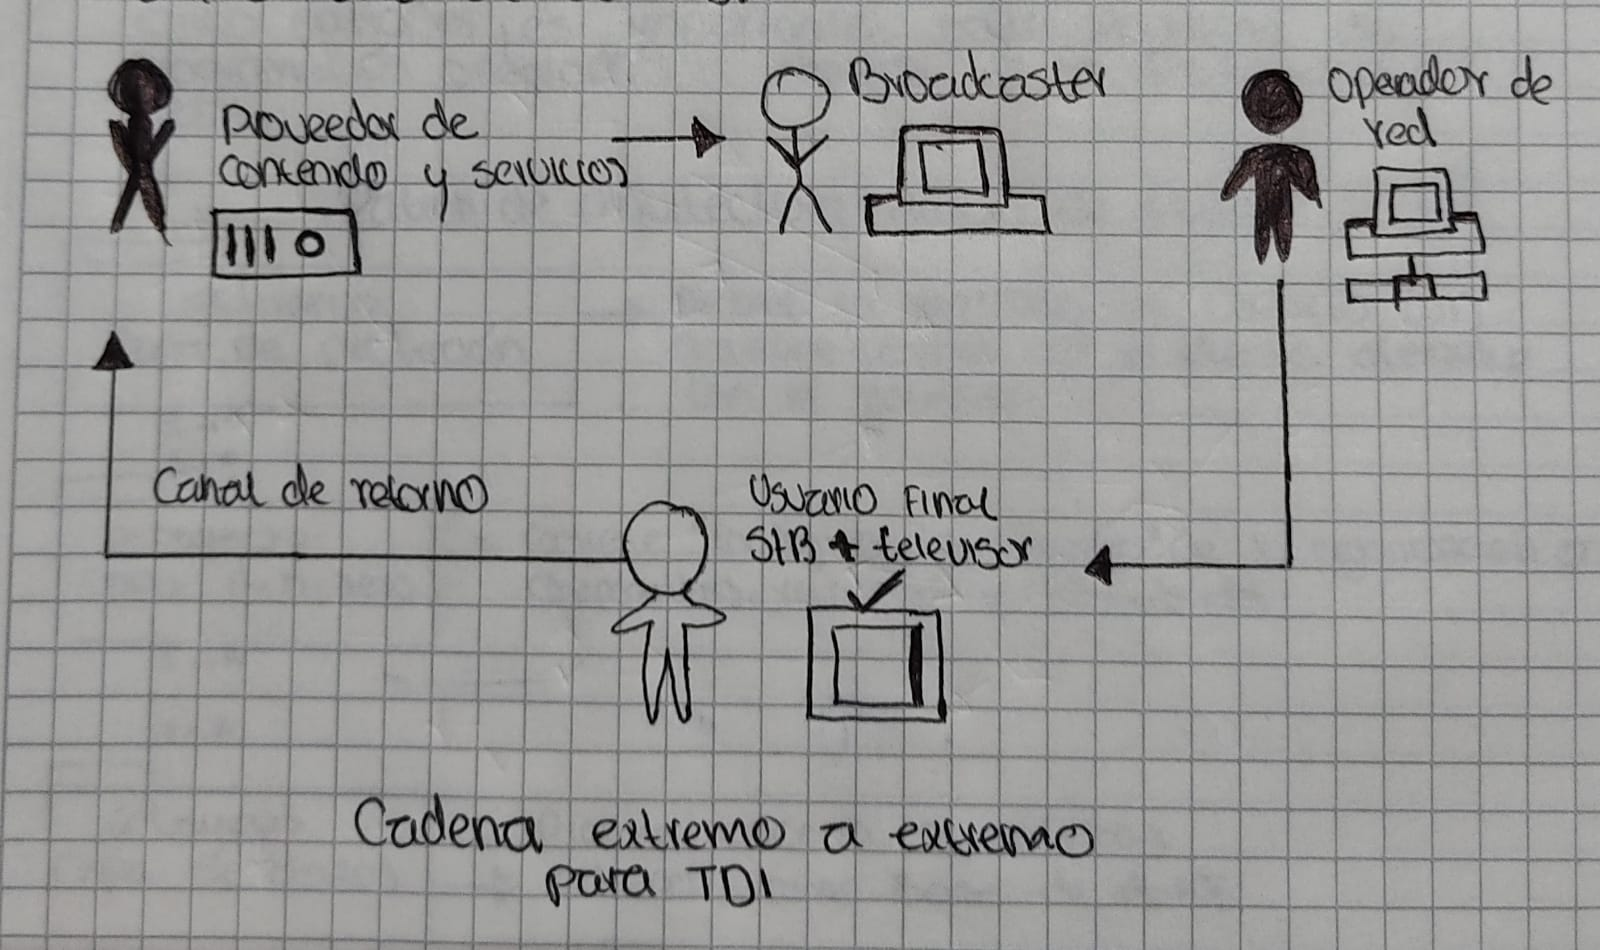 Proveedor de
contenido y servicios
Broadcaster
Operador de
red
Canal de retorno
Usuario Final
StB + televisor
Cadena extremo a extremo
para TDI